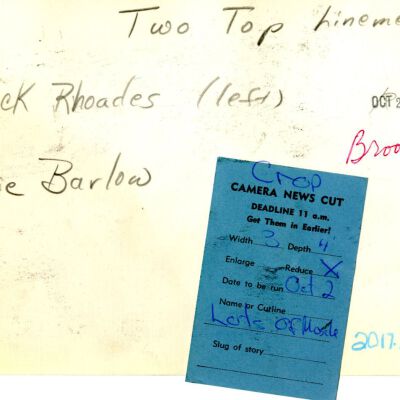 Two Top Lineme
ck Rhoades (left)
OCT 2
Broo
ie Barlow
Crop
CAMERA NEWS CUT
DEADLINE 11 a.m.
Get Them in Earlier!
Width 3 Depth 4"
Enlarge Reduce X
Date to be run Oct 2
Name or Cutline
Slug of story
2017.